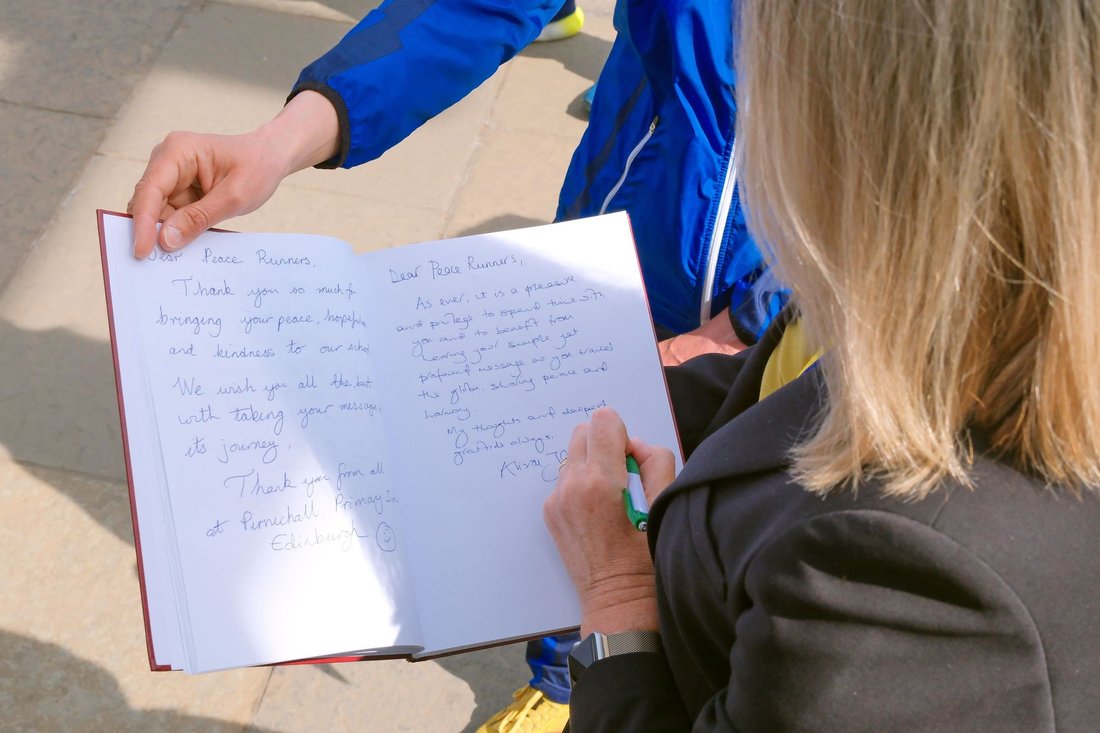 Dear Peace Runners,
Thank you so much for
bringing your peace, hopefulness
and kindness to our school
We wish you all the best
with taking your message
its journey.
Thank you from all
at Pirniehall Primary S
Edinburgh
Dear Peace Runners,
As ever, it is a pleasure
and privilege to spend time with
you and to benefit from
hearing your simple yet
profound message as you travel
the globe, sharing peace and
harmony.
My thoughts and deepest
gratitude always.
Alison